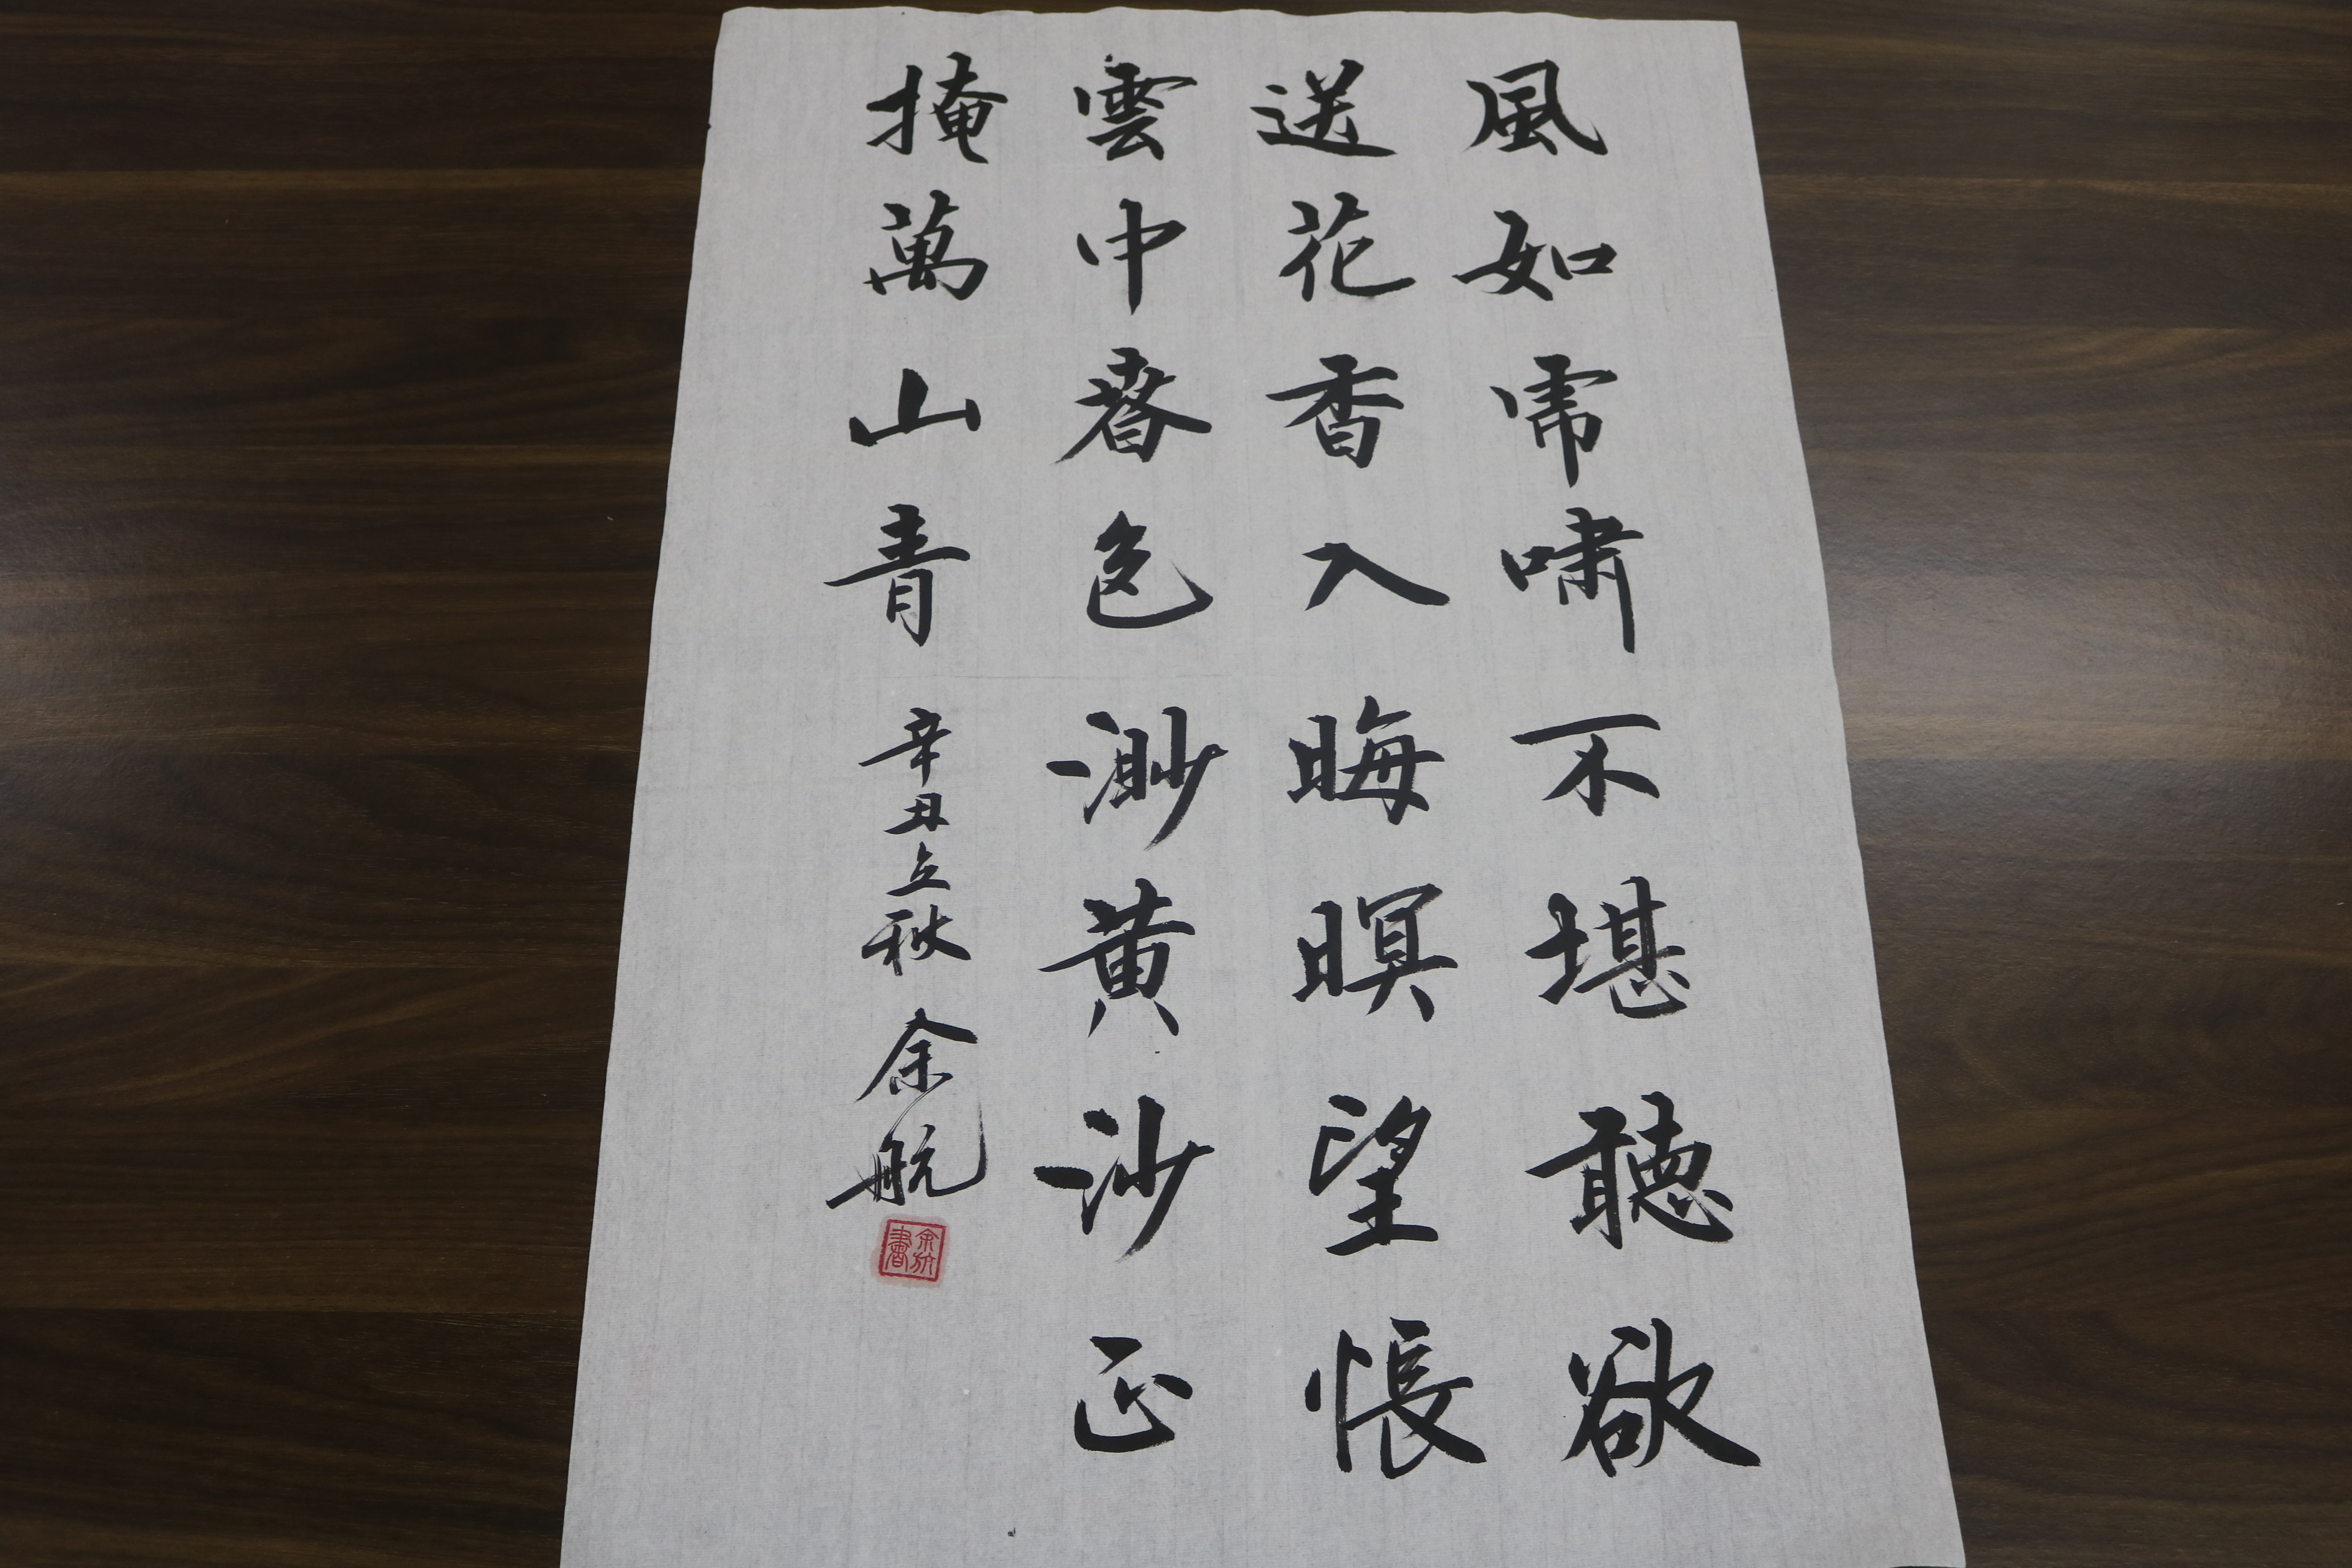 風如虎嘯不堪聽欲
送花香入晦暝望悵
雲中春色渺黃沙正
掩萬山青
辛丑立秋 余航
余航書